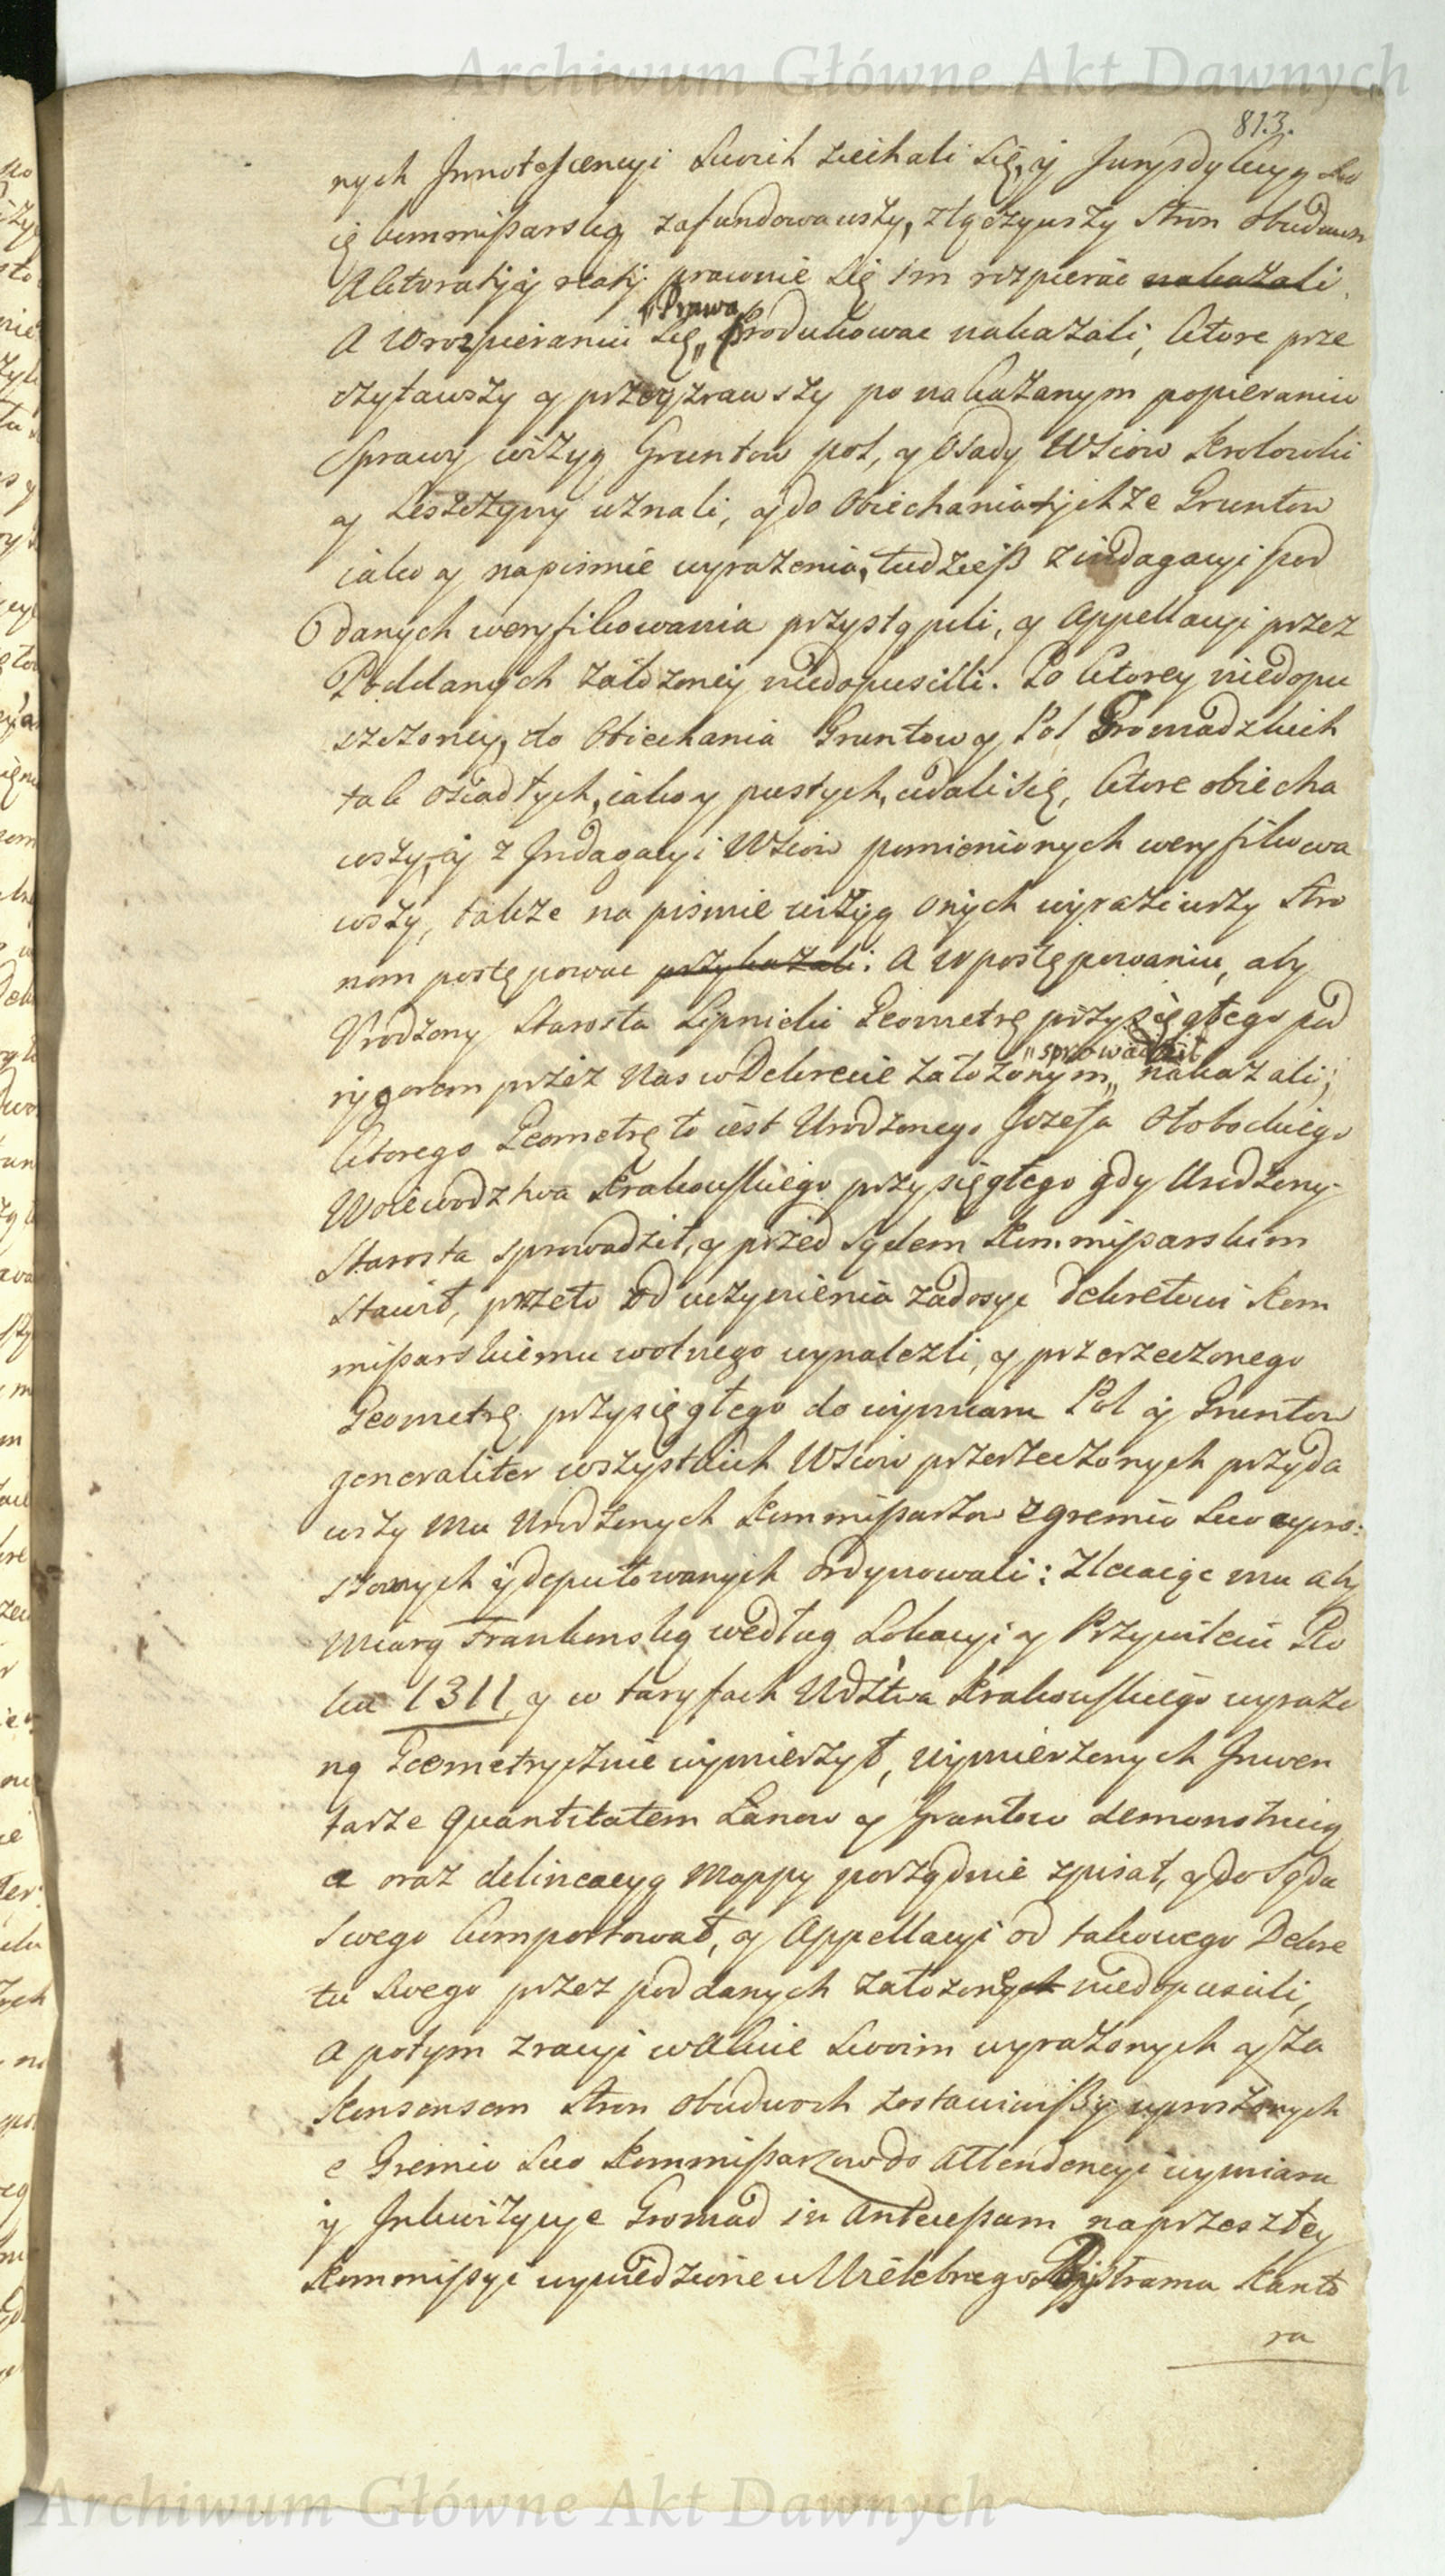 Archiwum Główne Akt Dawnych
813.
nych Innotescencyi Swoich ziechali Się, y Jurysdykcyą Swo
ię kommißarską zafundowawszy, złączywszy Stron obudwuch
Aktoraty y reaty prawnie Się im rozpierać nakazali.
A w rozpieraniu Się „ Produkować nakazali, ktore prze
„ Prawa
czytawszy y przeyzrawszy po nakazanym popieraniu
Sprawy wizyą Gruntow pol, y Osady Wsiow Krolowki
y Leszczyny uznali, y do Obiechania tychże Gruntow
iako y na pismie wyrażenia, tudzieß z indagacyi pod
danych weryfikowania przystąpili, y Appellacyi przez
Poddanych założoney niedopuscili. Po ktorey niedopu
szczoney, do Obiechania Gruntow y Pol Gromadzkich
tak osiadłych, iako y pustych, udali się, ktore obiecha
wszy, y z Indagacyi Wsiow pomienionych weryfikowa
wszy, także na pismie wizyą onych wyraziwszy Stro
nom postępować przykazali: A w postępowaniu, aby
Urodzony Starosta Lipnicki Geometrę przysięgłego pod
rygorem przez Nas w Dekrecie założonym „ nakazali;
„ sprowadził
ktorego Geometrę to iest Urodzonego Jozefa Ołobockiego
Woiewodztwa Krakowskiego przysięgłego gdy Urodzony
Starosta sprowadził, y przed Sądem Kommißarskim
Stawił, przeto od uczynienia zadosyc Dekretowi Kom
mißarskiemu wolnego wynalezli, y przerzeczonego
Geometrę przysięgłego do wymiaru Pol y Gruntow
generaliter wszystkich Wsiow przerzeczonych przyda
wszy mu Urodzonych Kommißarzow z gremio Suo upro:
szonych y deputowanych ordynowali: Zlecaiąc mu aby
Miarą Frankonską według Lokacyi y Przywileiu Ro
ku 1311 y w taryfach Wdztwa Krakowskiego wyrażo
ną Geometrycznie wymierzył, wymierzonych Inwen
tarze quantitatem Łanow y Gruntow demonstruią
a oraz delineacyą Mappy porządnie spisał, y do Sądu
Swego komportował, y Appellacyi od takowego Dekre
tu Swego przez poddanych założoney niedopuscili,
A potym z racyi w Akcie Swoim wyrażonych y za
Konsensem Stron obudwoch zostawiwßy uproszonych
e Gremio Suo Kommißarzow do Attendencyi wymiaru
y Inkwizycye Gromad in Antecessum na przeszłey
Kommißyi wywiedzione u Wielebnego Bystrama Kanto
ra
Archiwum Główne Akt Dawnych